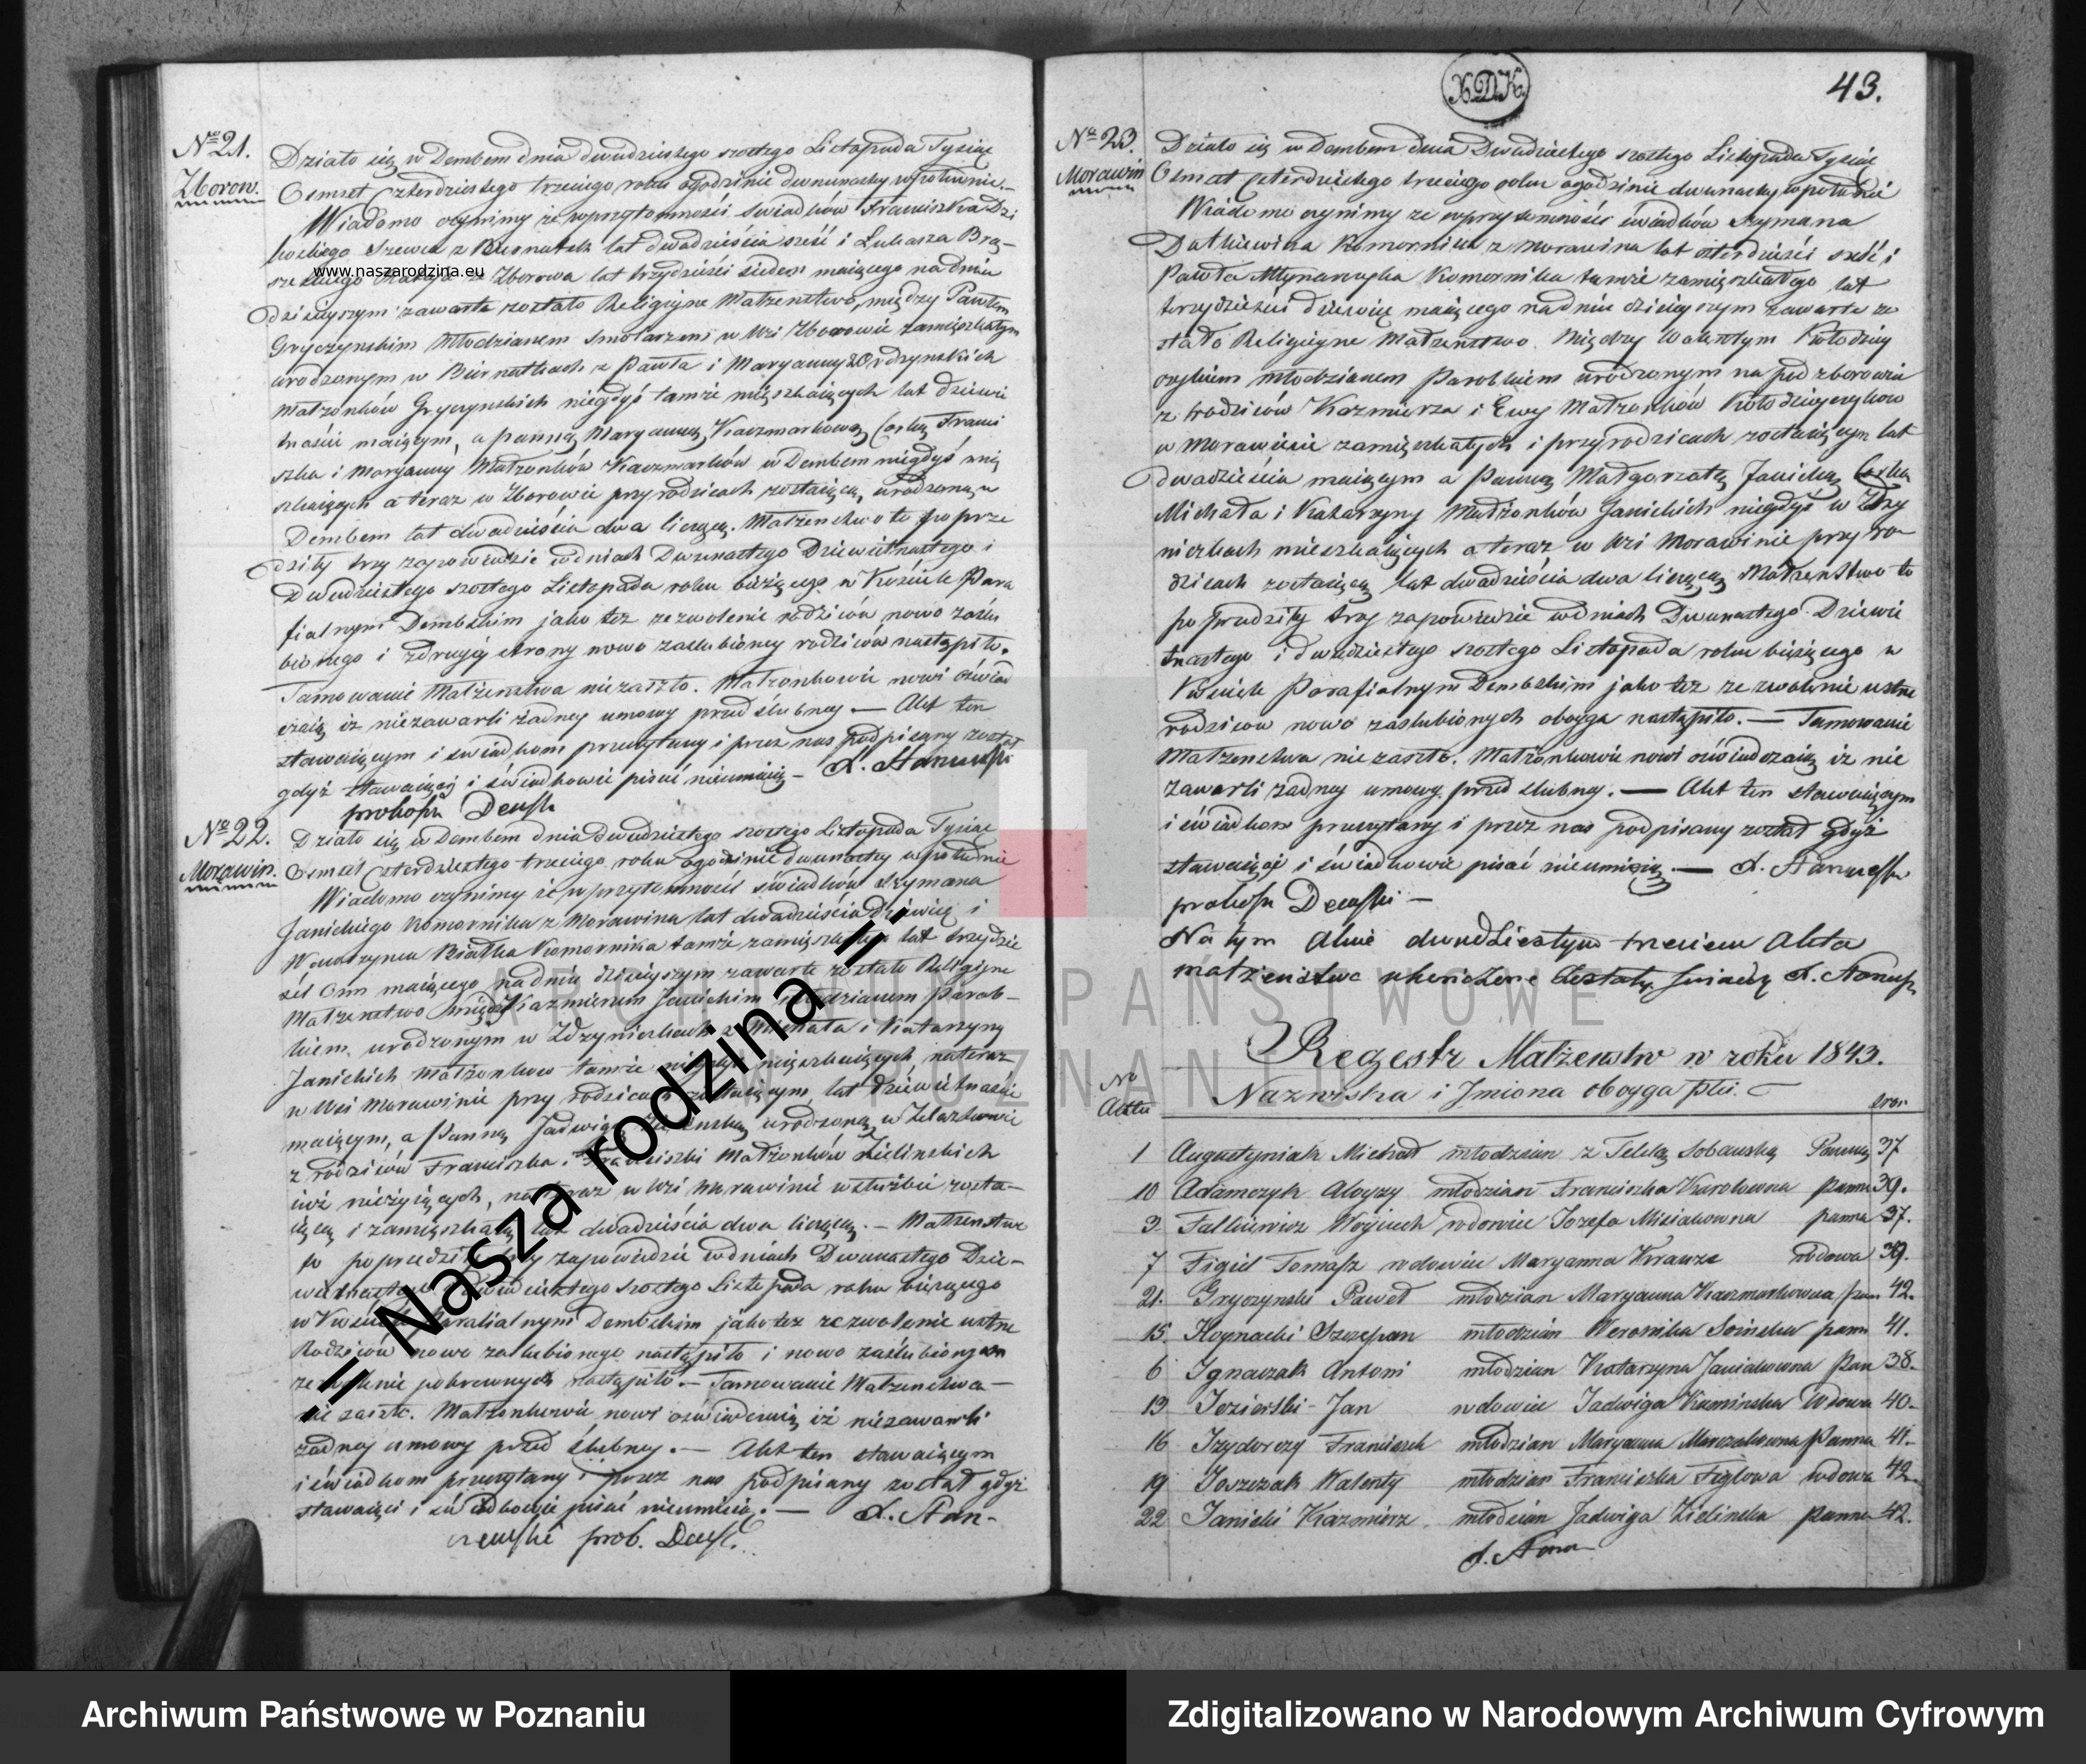 № 21.
Zborow.
Działo się w Dembem dnia dwudziestego szostego Listopada Tysiąc
Osmset Czterdziestego trzeciego roku ogodzinie dwunastey wpołudnie.—
Wiadomo czynimy że wprzytomności świadków Franciszka Dzi
Szewca z Biernatek lat dwadzieścia sześć i Łukasza Brą-
z Zborowa lat trzydzieści siedem maiącego na dniu
dzisieyszym zawarte zostało Religijne Małżenstwo, między Pawłem
Gryczynskim Młodzianem Smolarzem w Wsi Zborowie zamięszkałym
urodzonym w Biernatkach z Pawła i Maryanny
Małzonków Gryczynskich niegdyś tamże mięszkaiących lat dziewię
tnaście maiącym, a panną Maryanną Kaczmarkową Corką Franci
szka i Maryanny Małzonków Kaczmarków w Dembem niegdyś mię
szkaiących a teraz w Zborowie przy rodzicach zostaiącą, urodzoną w
Dembem lat dwadzieścia dwa liczącą. Małżenstwo to poprze
dziły trzy zapowiedzie wdniach Dwunastego Dziewietnastego i
Dwudziestego szostego Listopada roku bieżącego w Kościele Para
fialnym Dembskim jako też zezwolenie rodziców nowo zaślu
bionego i zdrugiéj strony nowo zaślubioney rodziców nastąpiło.
Tamowanie Małżenstwa niezaszło. Małzonkowie nowi oświad
czaią iż niezawarli żadney umowy przedślubney — Akt ten
stawaiącym i świadkom przeczytany i przez nas podpisany został
gdyż stawaiący i świadkowie pisać nieumieią —
№ 22.
Morawin.
Działo się w Dembem dnia dwudziestego szostego Listopada Tysiąc
Osmset Czterdziestego trzeciego roku ogodzinie dwunastey wpołudnie
Wiadomo czynimy że wprzytomności świadków Szymana
Janickiego Komornika z Morawina lat dwadzieścia dziewięć i
Wawrzynca Białka Komornika tamże zamięszkałego lat trzydzie
ści Osm maiącego nadniu dzisieyszym zawarte zostało Religijne
Małzenstwo między Kazmierzem Janickim młodzianem Parob-
kiem urodzonym w Zdzynieckach z Michała i Katarzyny
Janickich Małzonkow tamże niegdyś mięszkaiących nateraz
w Wsi Morawinie przy rodzicach zostaiącym lat dziewietnaście
maiącym, a Panną Jadwigą urodzoną w Zelazkowie
z rodziców Franciszka i Franciszki Małzonków Zielinskich
iuż nieżyiących, nateraz w Wsi Morawinie wsłużbie zosta-
iącą i zamięszkałą lat dwadzieścia dwa liczącą. — Małzenstwo
to poprzedziły trzy zapowiedzie wdniach Dwunastego Dzie-
wietnastego i Dwudziestego szostego Listopada roku bieżącego
w Kościele Parafialnym Dembskim jako też zezwolenie ustne
Rodziców nowo zaślubionego nastąpiło i nowo zaślubionéj
zezwolenie pokrewnych nastąpiło. — Tamowanie Małzenstwa —
nie zaszło. Małzonkowie nowi oświadczaią iż niezawarli
żadney umowy przed ślubney. — Akt ten stawaiącym
i świadkom przeczytany i przez nas podpisany został gdyż
stawaiący i świadkowie pisać nieumieią. —
prob.
XDK.
43.
№ 23.
Morawin
Działo się w Dembem dnia Dwudziestego szostego Listopada Tysiąc
Osmset Czterdziestego trzeciego roku ogodzinie dwunastey wpołudnie
Wiadomo czynimy ze wprzytomności świadków Szymana
Dutkiewicza Komornika z Morawina lat czterdzieści sześć i
Pawła Młynarczyka Komornika tamże zamięszkałego lat
trzydzieści dziewięć maiącego nadniu dzisieyszym zawarte zo
stało Religiyne Małzenstwo Między Walentym Kołodziey
czykiem młodzianem Parobkiem urodzonym na pod zborowiu
z rodziców Kazmierza i Ewy Małzonków Kołodzieyczykow
w Morawinie zamięszkałych i przy rodzicach zostaiącym lat
dwadzieścia maiącym a Panną Małgorzatą Janicką Corką
Michała i Katarzyny Małżonków Janickich niegdyś w Zdzy
nieckach mieszkaiących a teraz w Wsi Morawinie przy ro
dzicach zostaiącą lat dwadzieścia dwa liczącą Małzenstwo to
poprzedziły trzy zapowiedzie wdniach Dwunastego Dziewie
tnastego i dwudziestego szostego Listopada roku bieżącego w
Kościele Parafialnym Dembskim jako też zezwolenie ustne
rodziców nowo zaslubionych oboyga nastąpiło. — Tamowanie
Małzenstwa niezaszło. Małżonkowie nowi oświadczaią iż nie
zawarli żadney umowy przed ślubney. — Akt ten stawaiącym
i świadkom przeczytany i przez nas podpisany został gdyż
stawaiący i świadkowie pisać nieumieią. —
Na tym Akcie dwudziestym trzeciem Akta
małżenstwa ukończone zostały świadczy
Regestr Małżenstw w roku 1843.
№ Aktu
Nazwiska i Jmiona oboyga płci.
stro.
1 Augustyniak Michał młodzian z Teklą Sobanską Panną 37
10 Adamczyk Aloyzy młodzian Franciszka Karolowna panna 39.
3 Falkiewicz Woyciech wdowiec Jozefa Misiakowna panna 37.
7 Figiel Tomasz wdowiec Maryanna Krauze wdowa 39.
21. Gryczynski Paweł młodzian Maryanna Kaczmarkowna pan 42.
15 Szczepan młodzian Weronika panna 41.
6 Ignaczak Antoni młodzian Katarzyna Janiakowna Pan 38.
13 Jozierski Jan wdowiec Jadwiga Kaminska Wdowa 40.
16 Izydorczy Franciszek młodzian Maryanna Marczakowna Panna 41.
19 Joszczak Walenty młodzian Franciszka Figlowa wdowa 42.
22 Janicki Kazmierz młodzian Jadwiga Zielinska panna 42.
www.naszarodzina.eu
-= Nasza rodzina =-
ARCHIWUM PAŃSTWOWE
W POZNANIU
Archiwum Państwowe w Poznaniu
Zdigitalizowano w Narodowym Archiwum Cyfrowym